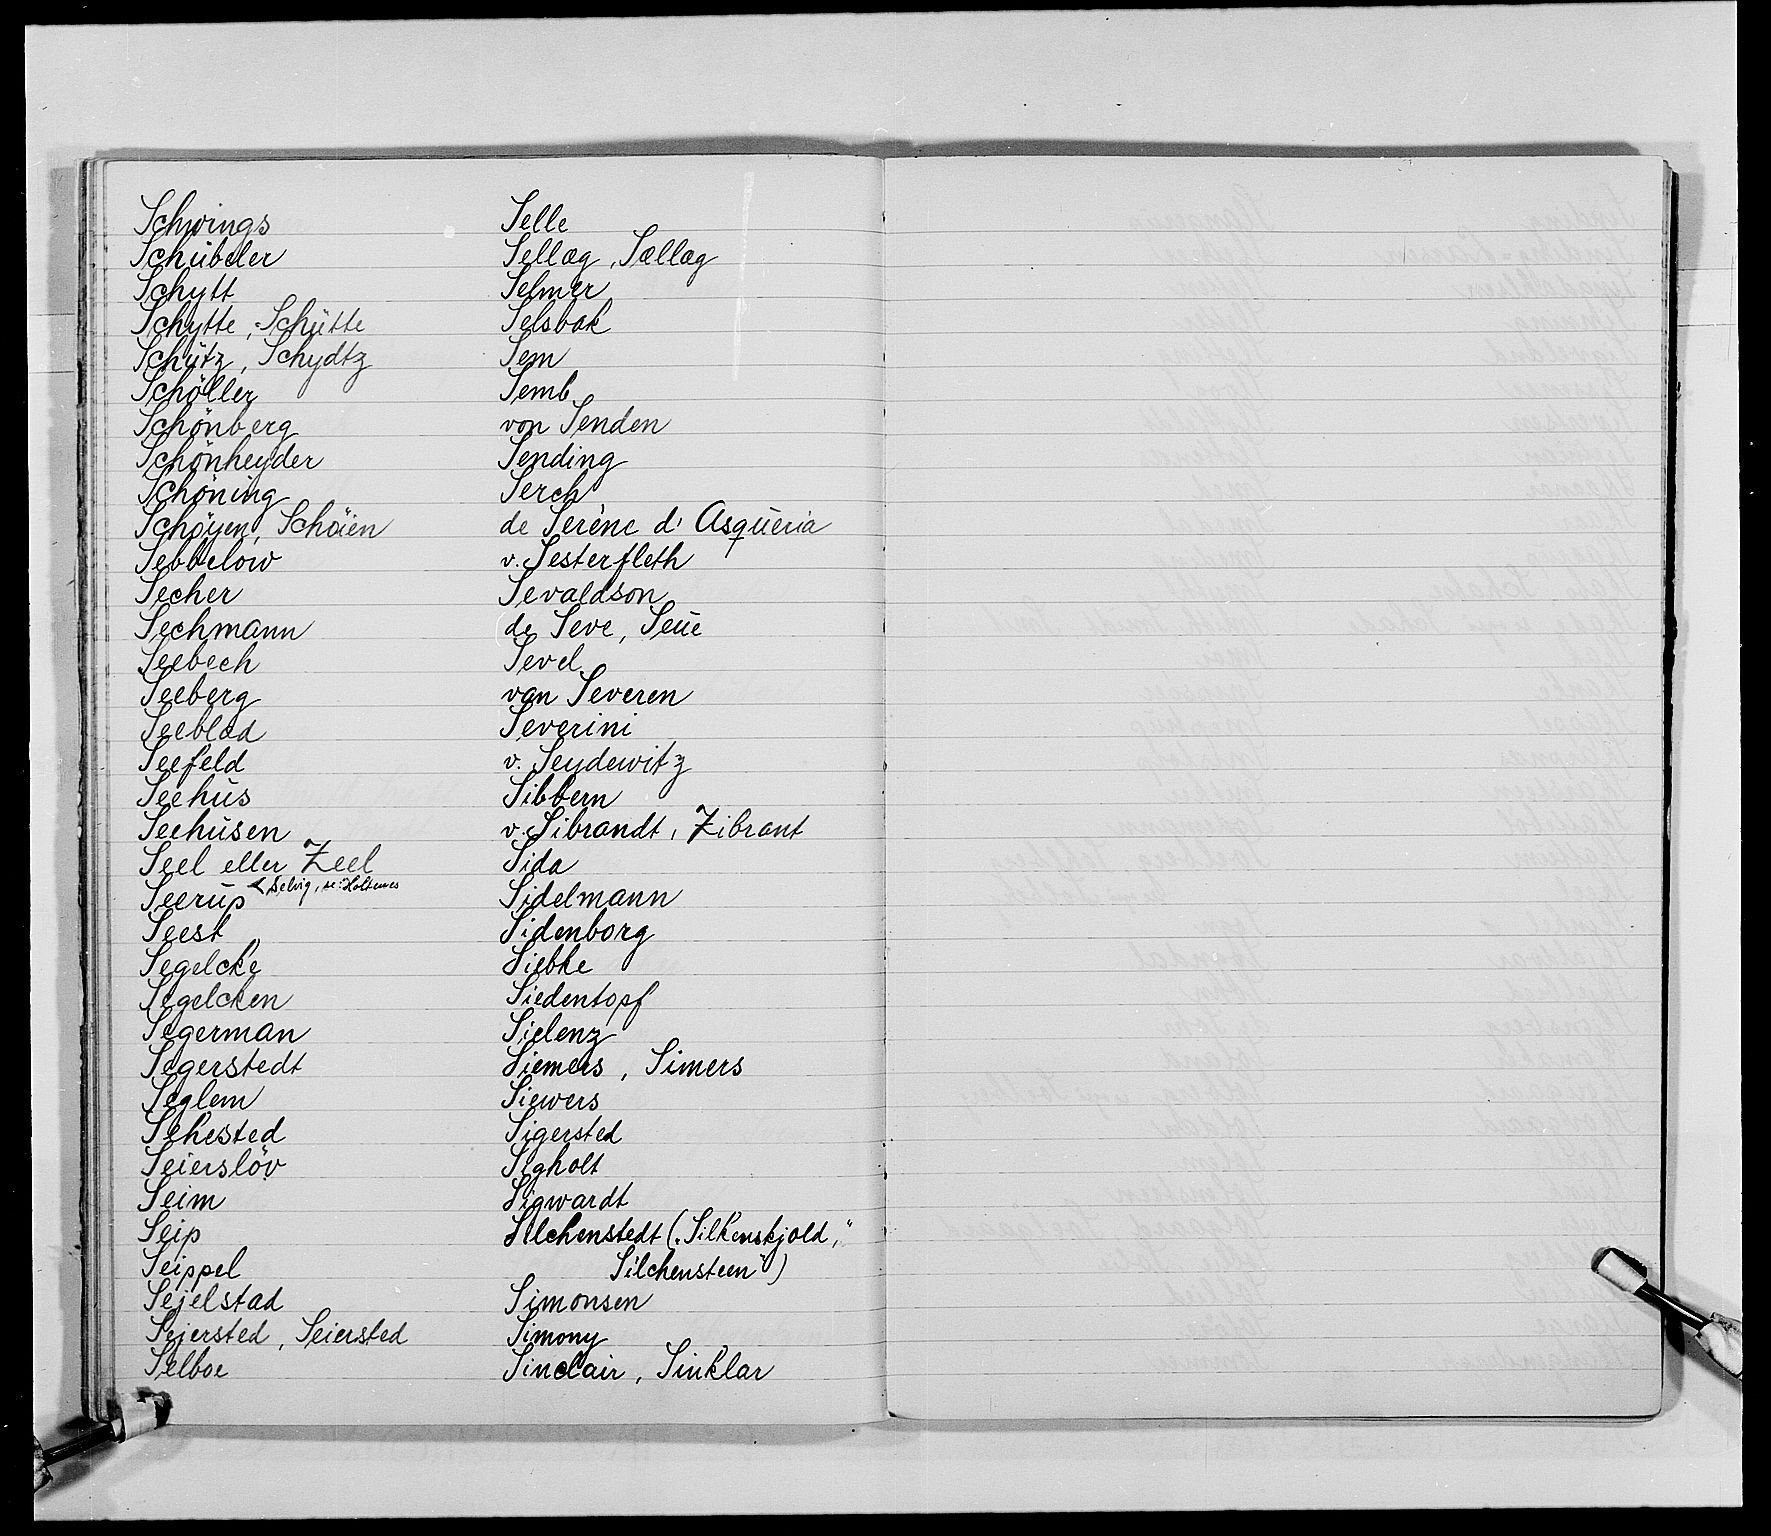 Schwings
Schübeler
Schytt
Schytte, Schütte
Schütz, Schydtz
Schöller
Schönberg
Schönheyder
Schöning
Schöyen, Schöien
Sebbelow
Secher
Sechmann
Seebech
Seeberg
Seeblad
Seefeld
Seehus
Seehusen
Seel eller Zeel
Selvig, se: Holtermes
Seerup
Seest
Segelcke
Segelcken
Segerman
Segerstedt
Seglem
Sehested
Seierslöv
Seim
Seip
Seippel
Sejelstad
Sejersted, Seiersted
Selboe
Selle
Sellæg, Sællæg
Selmer
Selsbak
Sem
Semb
von Senden
Sending
Serch
de Serène d' Asqueria
v. Sesterfleth
Sevaldson
de Seve, Seue
Sevel
van Severen
Severini
v. Seydewitz
Sibbern
v. Sibrandt, Zibrant
Sida
Sidelmann
Sidenborg
Siebke
Siedentopf
Sielenz
Siemers, Simers
Siewers
Sigersted
Sigholt
Sigwardt
Silchenstedt ("Silkenskjold,"
Silchensteen")
Simonsen
Simony
Sinclair, Sinklar